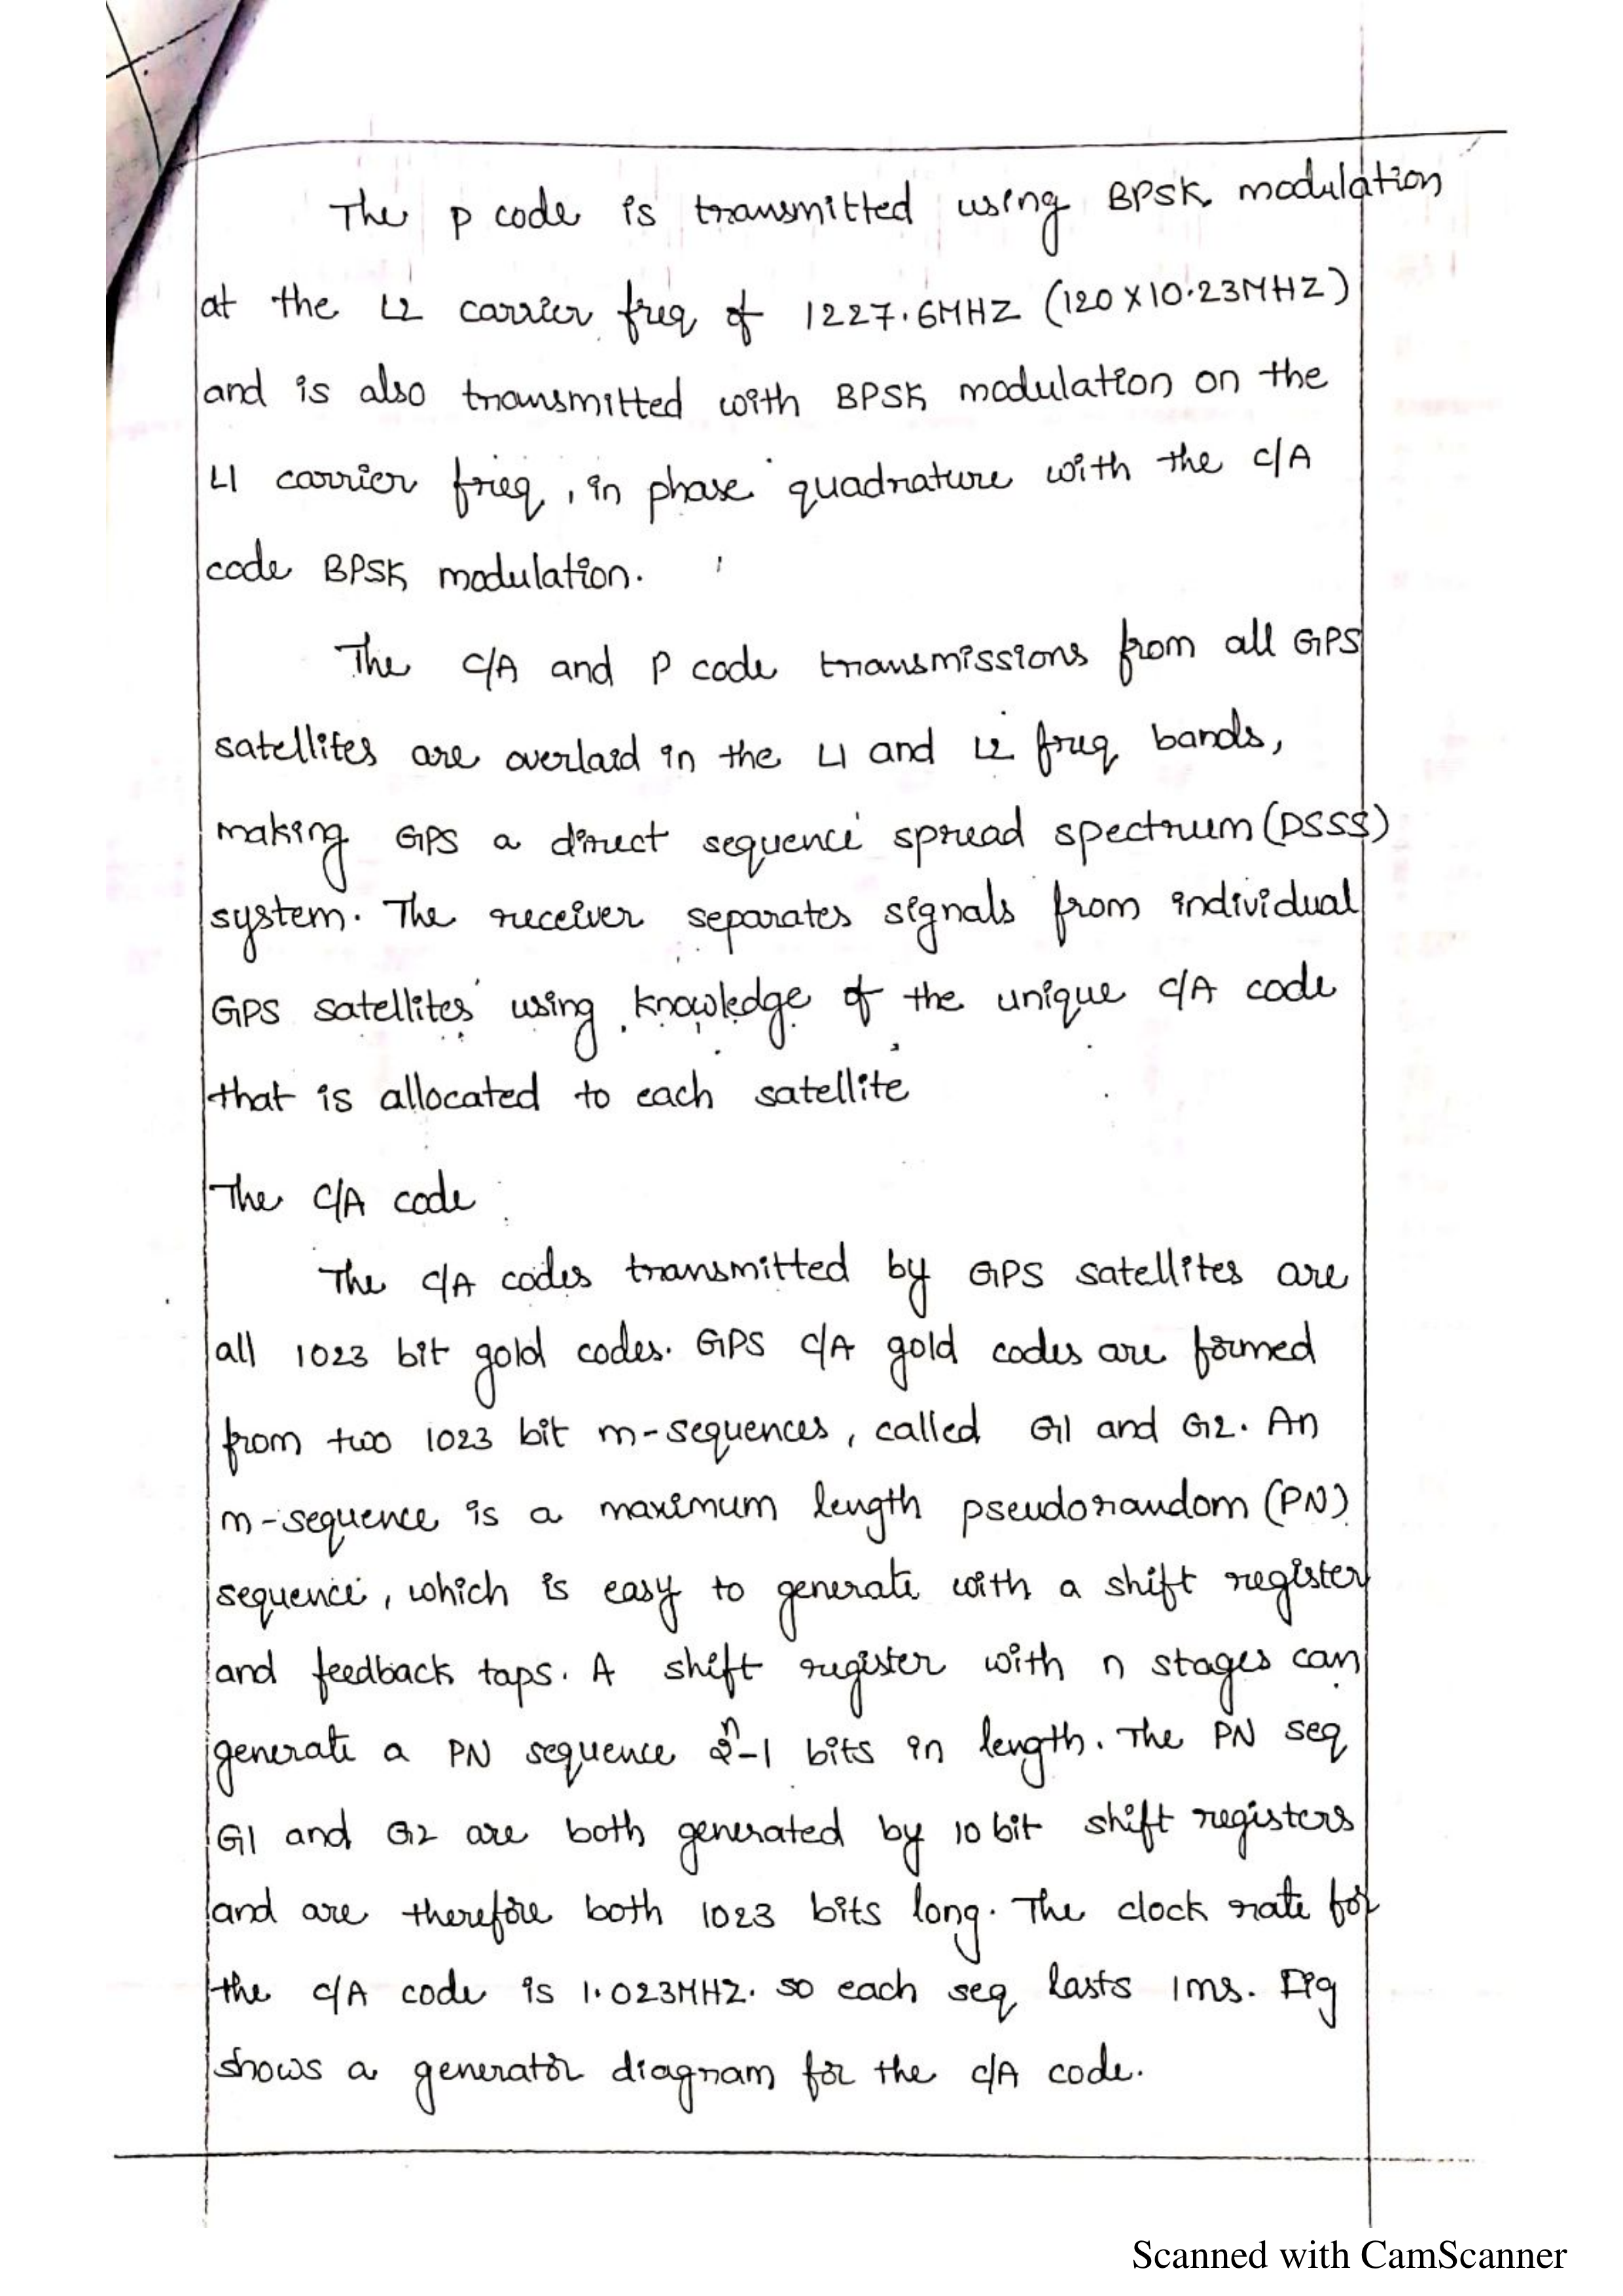 The P code is transmitted using BPSK modulation
at the L2 carrier freq of 1227.6MHZ (120 X 10.23MHZ)
and is also transmitted with BPSK modulation on the
L1 carrier freq, in phase quadrature with the C/A
code BPSK modulation.
The C/A and P code transmissions from all GPS
satellites are overlaid in the L1 and L2 freq bands,
making GPS a direct sequence spread spectrum (DSSS)
system. The receiver separates signals from individual
GPS satellites using knowledge of the unique C/A code
that is allocated to each satellite
The C/A code
The C/A codes transmitted by GPS satellites are
all 1023 bit gold codes. GPS C/A gold codes are formed
from two 1023 bit m-sequences, called G1 and G2. An
m-sequence is a maximum length pseudorandom (PN)
sequence, which is easy to generate with a shift register
and feedback taps. A shift register with n stages can
generate a PN sequence 2ⁿ-1 bits in length. The PN seq
G1 and G2 are both generated by 10 bit shift registers
and are therefore both 1023 bits long. The clock rate for
the C/A code is 1.023MHZ. so each seq lasts 1ms. Fig
shows a generator diagram for the C/A code.
Scanned with CamScanner